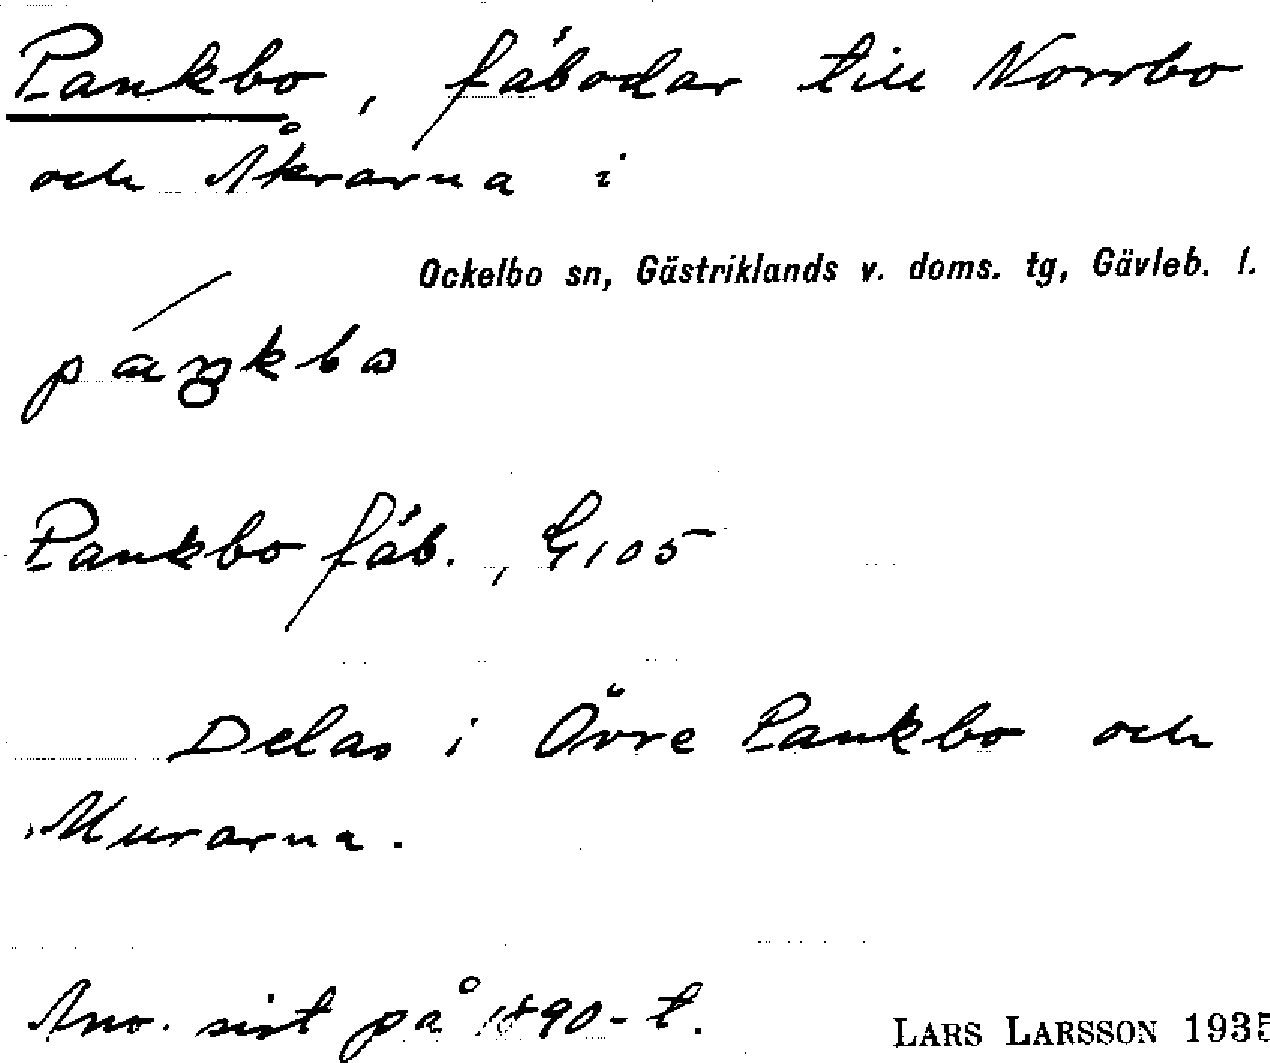 Pankbo, fäbodar till Norrbo
och Åkrarna i
Ockelbo sn, Gästriklands v. doms. tg, Gävleb. l.
Pankbo fäb., G105
Delas i Övre Pankbo och
Murarna.
Anv. sist på 1890-t.
LARS LARSSON 1935